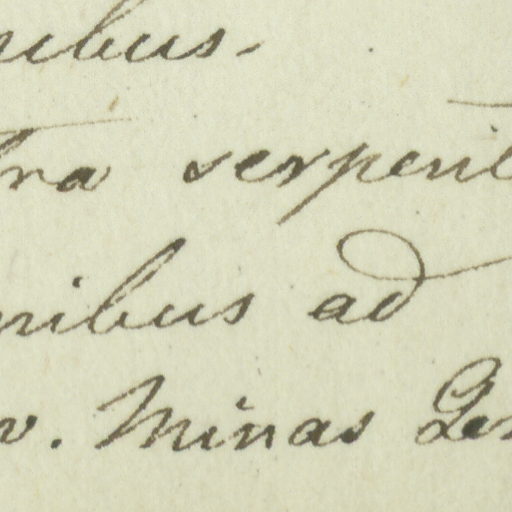 ribus.
tra serpent
oribus ad
v. Minas Ger